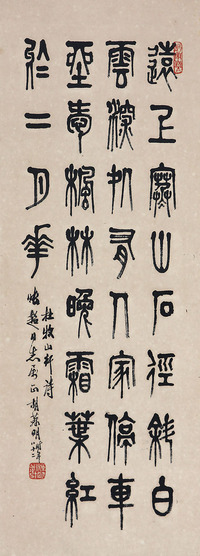 遠上寒山石徑斜白
雲深処有人家停車
坐愛楓林晚霜葉紅
於二月華
杜牧山行詩
超同志屬正